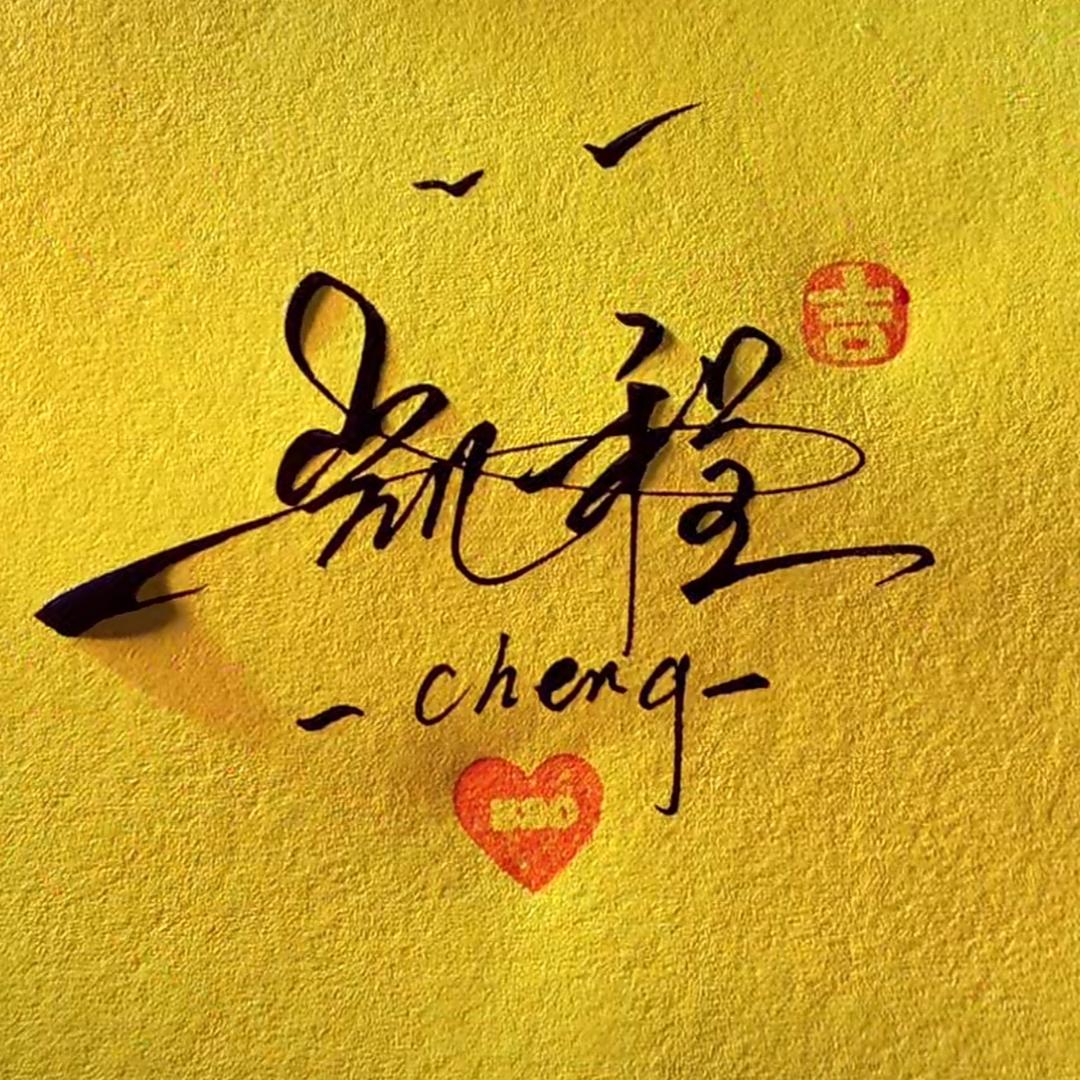 吉
凯程
-cheng-